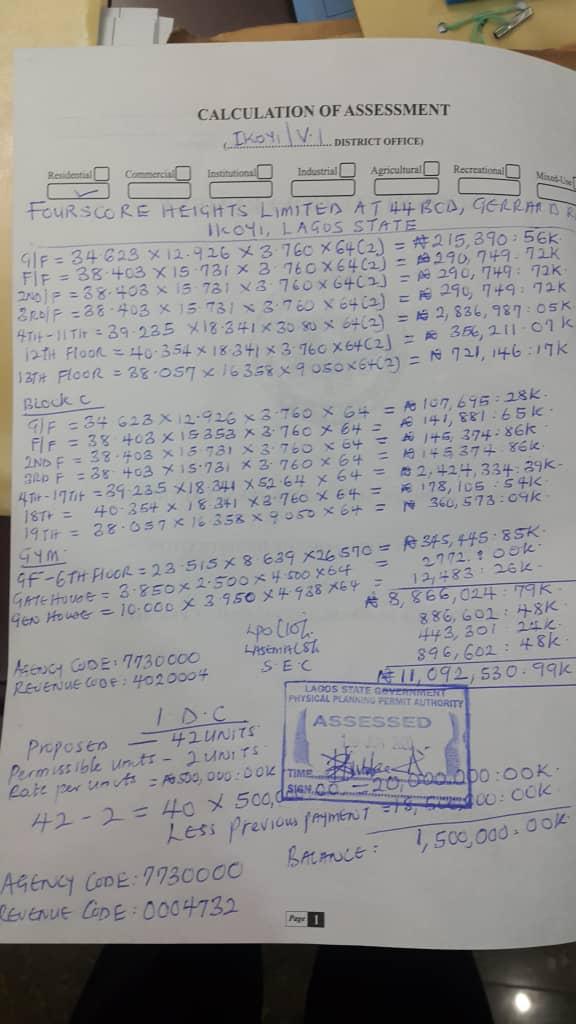 CALCULATION OF ASSESSMENT
(IKOYI/V.I DISTRICT OFFICE)
Residential Commercial Institutional Industrial Agricultural Recreational Mixed-Use
FOURSCORE HEIGHTS LIMITED AT 44BCD, GERRARD R
IKOYI, LAGOS STATE
G/F = 34.623 × 12.926 × 3.760 × 64(2) = ₦215,390:56K
F/F = 38.403 × 15.731 × 3.760 × 64(2) = ₦290,749.72K
2ND/F = 38.403 × 15.731 × 3.760 × 64(2) = ₦290,749:72K
3RD/F = 38.403 × 15.731 × 3.760 × 64(2) = ₦290,749:72K
4TH-11TH = 39.235 × 18.341 × 30.80 × 64(2) = ₦2,836,987:05K
12TH FLOOR = 40.354 × 18.341 × 3.760 × 64(2) = ₦356,211.07K
13TH FLOOR = 38.057 × 16358 × 9050 × 64(2) = ₦721,146:17K
BLOCK C
G/F = 34 623 × 12.926 × 3.760 × 64 = ₦107,695:28K
F/F = 38.403 × 15353 × 3.760 × 64 = ₦141,881:65K
2ND F = 38.403 × 15.731 × 3.760 × 64 = ₦145,374:86K
3RD F = 38.403 × 15.731 × 3.760 × 64 = ₦145374.86K
4TH-17TH = 39.235 × 18.341 × 52.64 × 64 = ₦2,424,334:39K
18TH = 40.354 × 18.341 × 3.760 × 64 = ₦178,105:54K
19TH = 38.057 × 16 358 × 9050 × 64 = ₦360,573:09K
GYM:
GF-6TH FLOOR = 23.515 × 8 639 × 26570 = ₦345,445:85K
GATE HOUSE = 3.850 × 2.500 × 4.500 × 64 = 2772:00K
GEN HOUSE = 10.000 × 3 950 × 4.938 × 64 = 12,483:26K
₦8,866,024:79K
LPO(10%) 886,602:48K
LASEMA(5%) 443,301:24K
S.E.C 896,602:48K
₦11,092,530.99K
AGENCY CODE: 7730000
REVENUE CODE: 4020004
LAGOS STATE GOVERNMENT
PHYSICAL PLANNING PERMIT AUTHORITY
ASSESSED
TIME
SIGN.
I D.C
PROPOSED = 42 UNITS
Permissible units - 2 UNITS
Rate per units = ₦500,000:00K
42 - 2 = 40 × 500,000.00 = 20,000.000:00K
LESS Previous PAYMENT = 18,500,000:00K
BALANCE: 1,500,000.00K
AGENCY CODE: 7730000
REVENUE CODE: 0004732
Page 1